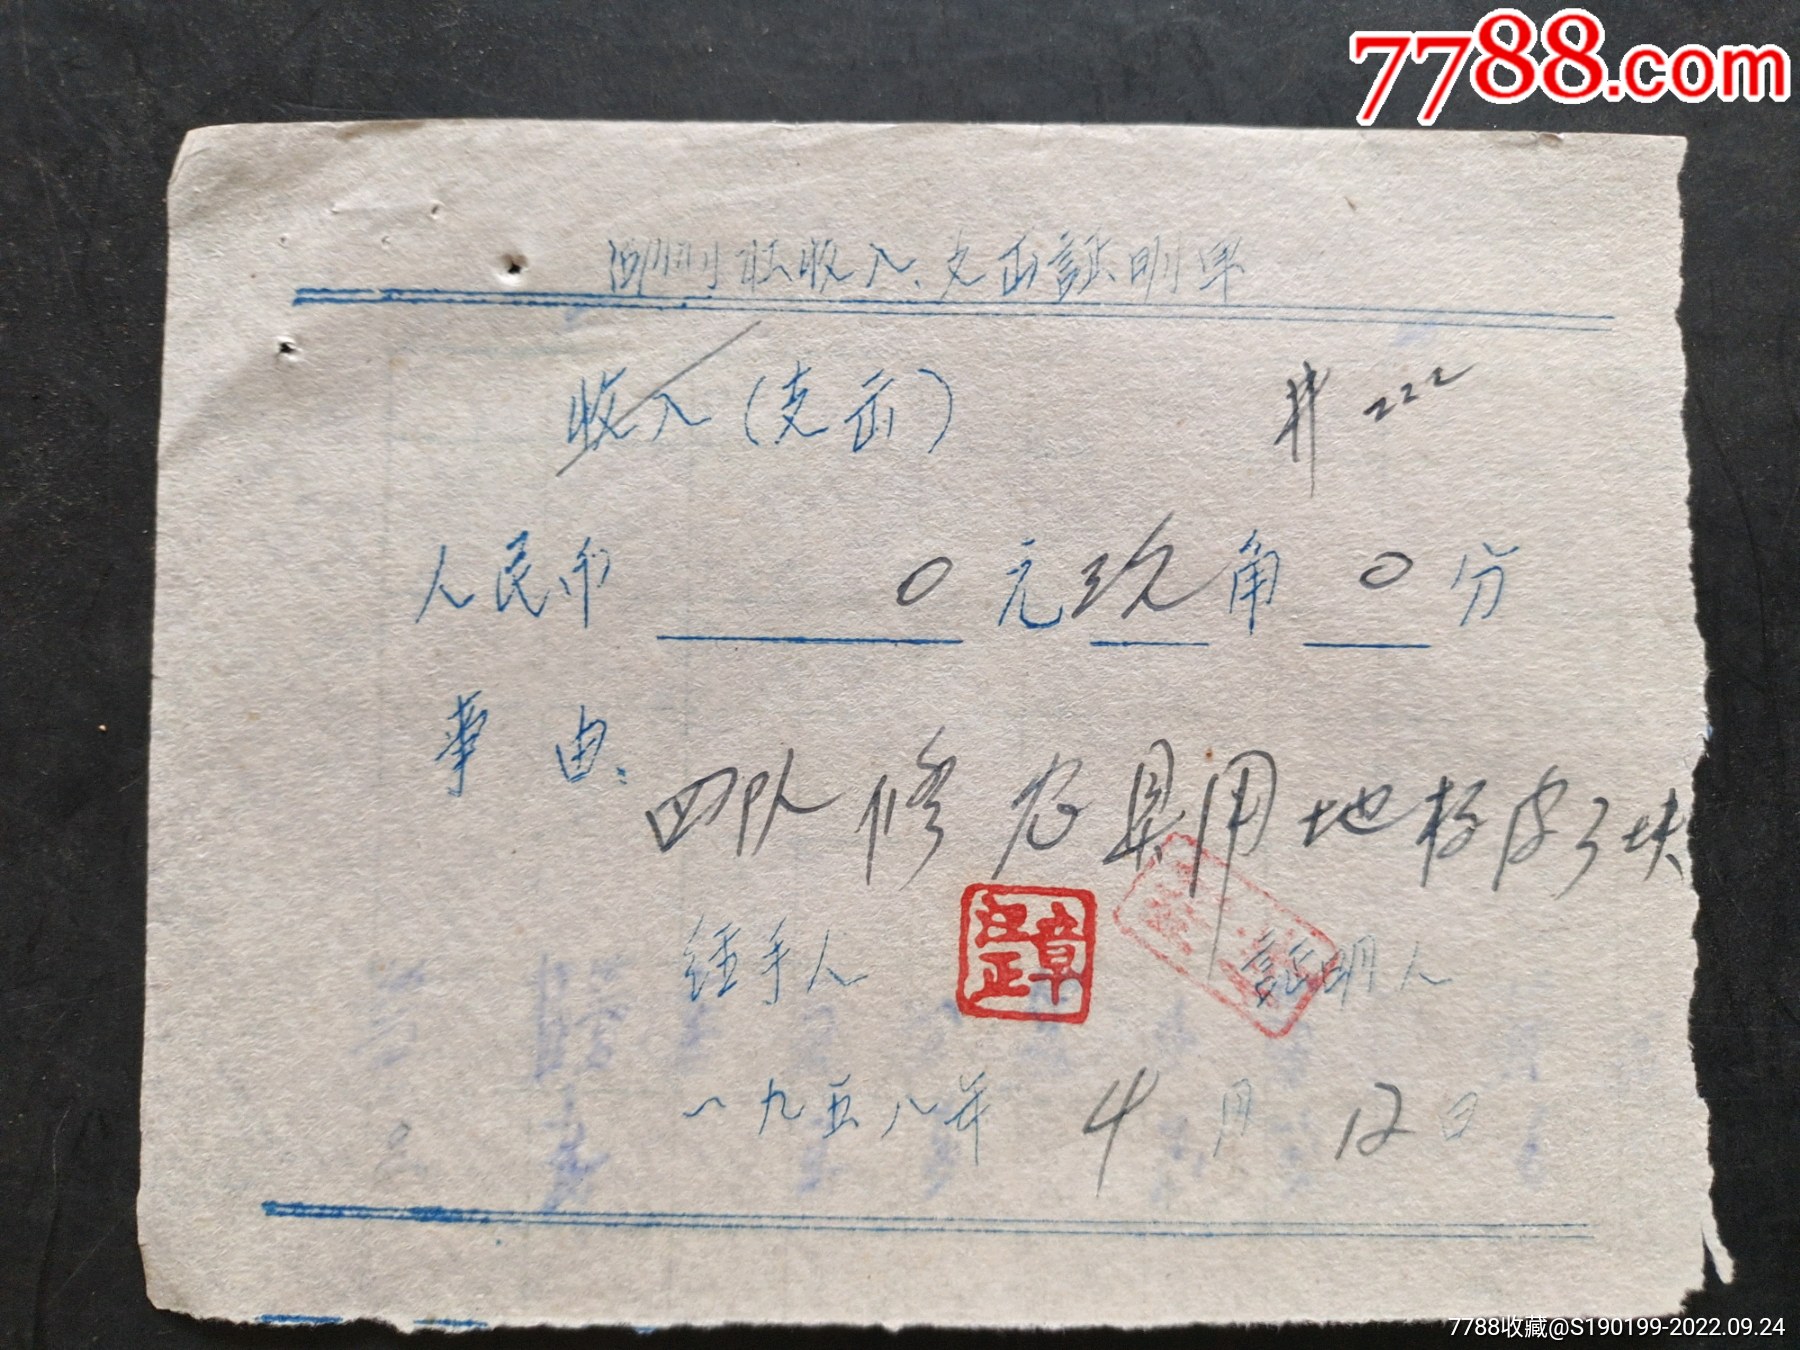 7788.com
社收入、支出証明单
收入(支出) 井222
人民币 0元玖角0分
事由:
四队修农具用地板皮3块
经手人 汪正章 証明人
一九五八年4月12日
7788收藏@S190199-2022.09.24